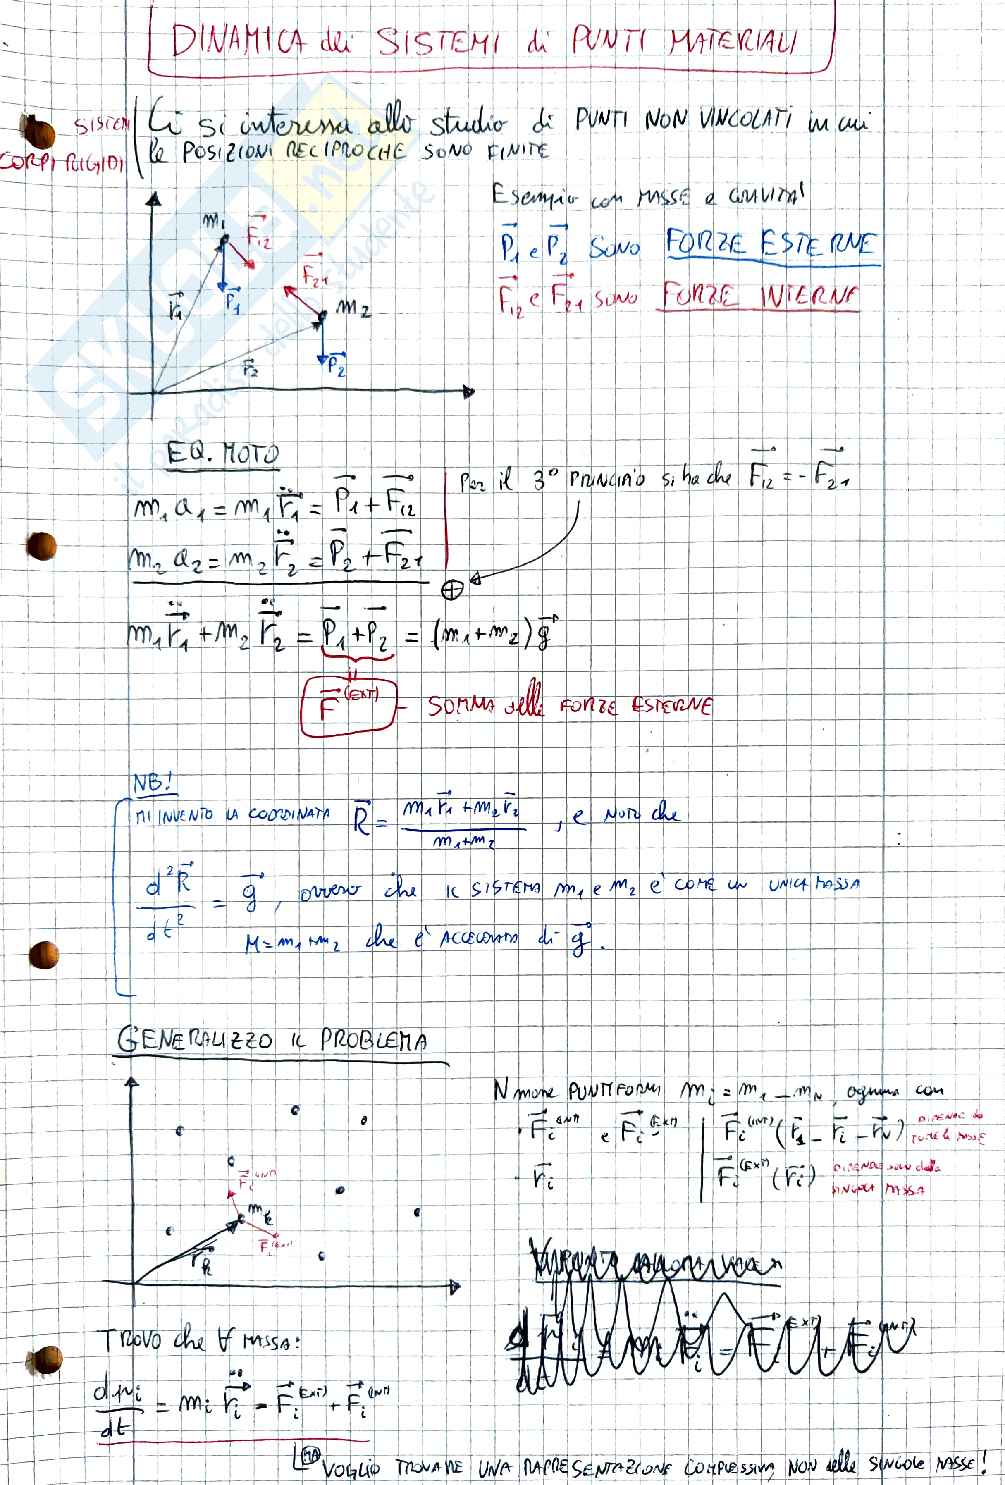 DINAMICA dei SISTEMI di PUNTI MATERIALI
SISTEMI
CORPI RIGIDI
Ci si interessa allo studio di PUNTI NON VINCOLATI in cui
le POSIZIONI RECIPROCHE SONO FINITE
Esempio con MASSE e GRAVITA'
P₁ e P₂ SONO FORZE ESTERNE
F₁₂ e F₂₁ SONO FORZE INTERNE
m₁
F₁₂
F₂₁
P₁
r₁
m₂
r₂
P₂
EQ. MOTO
Per il 3° PRINCIPIO si ha che F₁₂ = - F₂₁
m₁ a₁ = m₁ r̈₁ = P₁ + F₁₂
m₂ a₂ = m₂ r̈₂ = P₂ + F₂₁
⊕
m₁ r̈₁ + m₂ r̈₂ = P₁ + P₂ = (m₁+m₂) g
F^(EXT) - SOMMA delle FORZE ESTERNE
NB!
MI INVENTO LA COORDINATA R = (m₁r₁ + m₂r₂)/(m₁+m₂) , e NOTO che
d²R/dt² = g , ovvero che IL SISTEMA m₁ e m₂ E' COME UN UNICA MASSA
M = m₁+m₂ che e' ACCELERATA di g.
GENERALIZZO IL PROBLEMA
N masse PUNTIFORMI mᵢ = m₁ _ m_N, ognuna con
· Fᵢ^(INT) e Fᵢ^(EXT)
Fᵢ^(INT) (r₁ _ rᵢ _ r_N) DIPENDE da TUTTE le MASSE
· rᵢ
Fᵢ^(EXT) (rᵢ) DIPENDE solo dalla SINGOLA MASSA
Fᵢ^(INT)
m_k
F^(EXT)
r_k
TROVO che ∀ MASSA:
dpᵢ/dt = mᵢ r̈ᵢ = Fᵢ^(EXT) + Fᵢ^(INT)
MA VOGLIO TROVARE UNA RAPPRESENTAZIONE COMPLESSIVA, NON delle SINGOLE MASSE!
SKUOLA.net
il paradiso dello studente